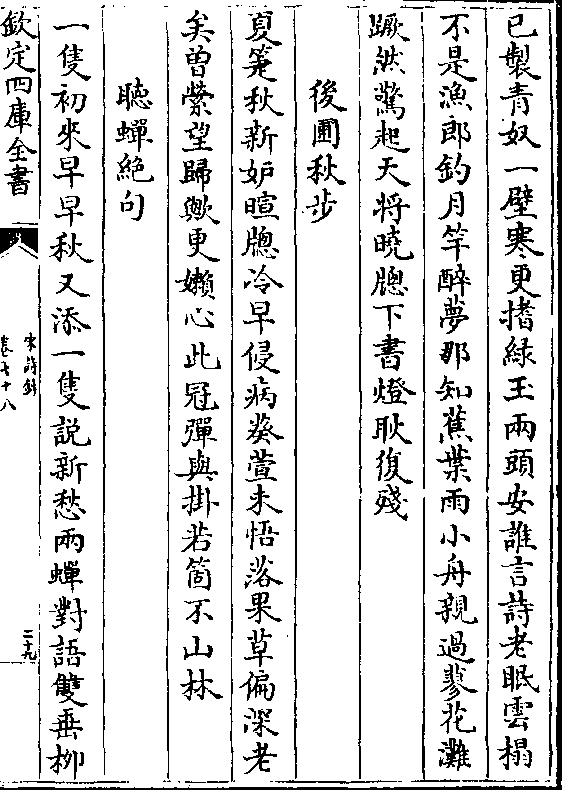 已製青奴一壁寒更搘緑玉兩頭安誰言詩老眠雲榻
不是漁郎釣月竿醉夢那知蕉葉雨小舟親過蓼花灘
蹶然驚起天將曉牕下書燈耿復殘
後圃秋步
夏箑秋新妒暄牕冷早侵病葵萱未悟落果草偏深老
矣曽縈望歸歟更嬾心此冠彈與掛若箇不山林
聽蟬絶句
一隻初來早早秋又添一隻説新愁兩蟬對語雙垂柳
欽定四庫全書
宋詩鈔
卷七十八
二十九